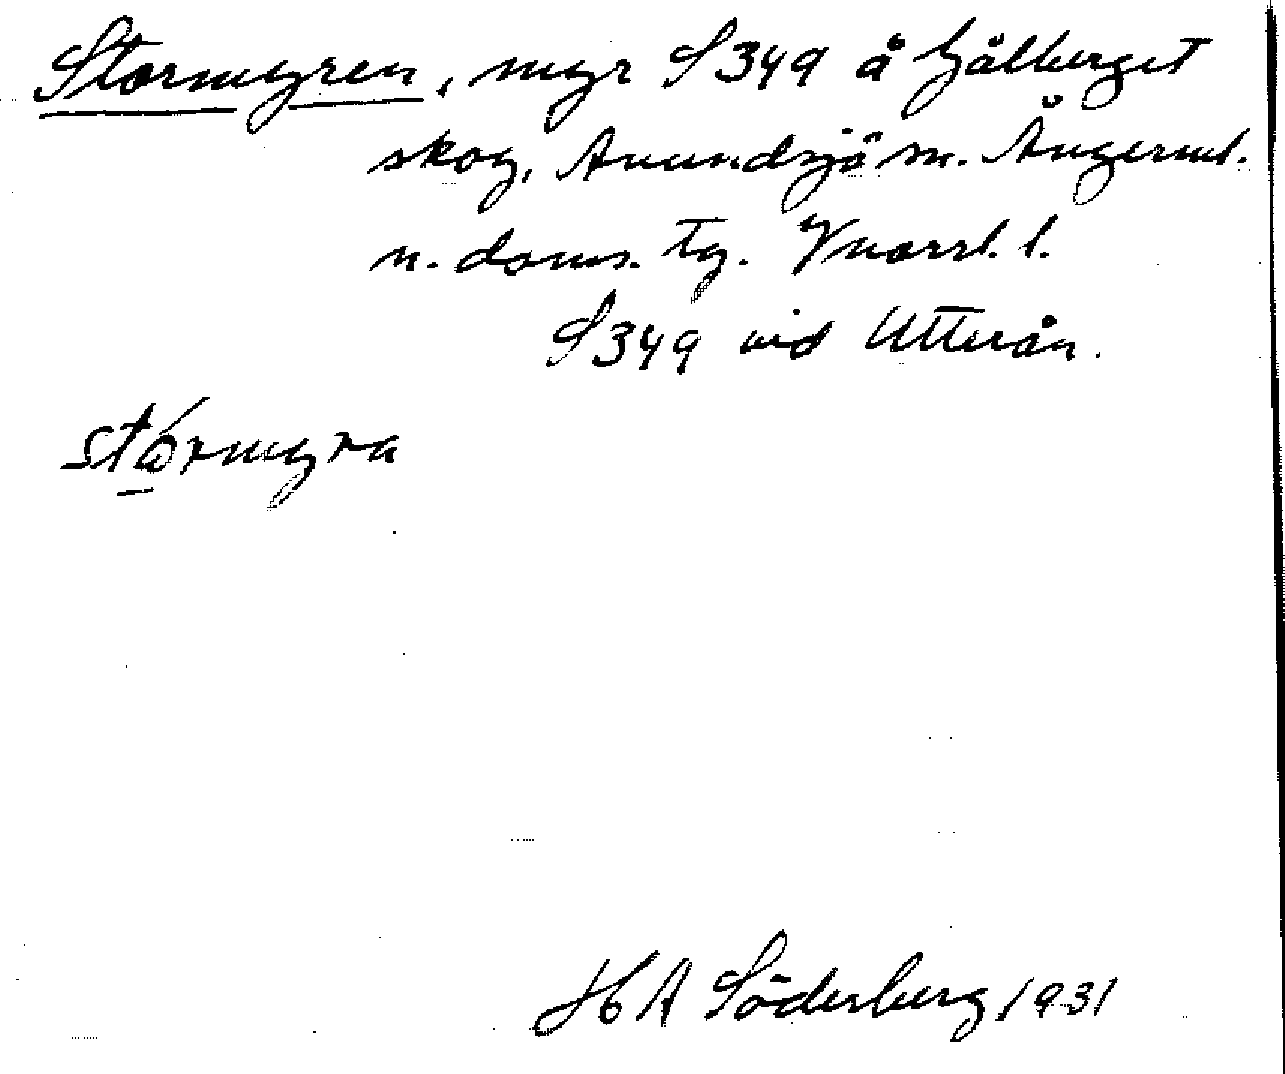 Stormyren, myr S 349 å Gålberget
skog, Anundsjö sn. Ångerml.
n. doms. tg. Vnorrl. l.
S 349 vid Utterån.
stórmyra
H A Söderberg 1931